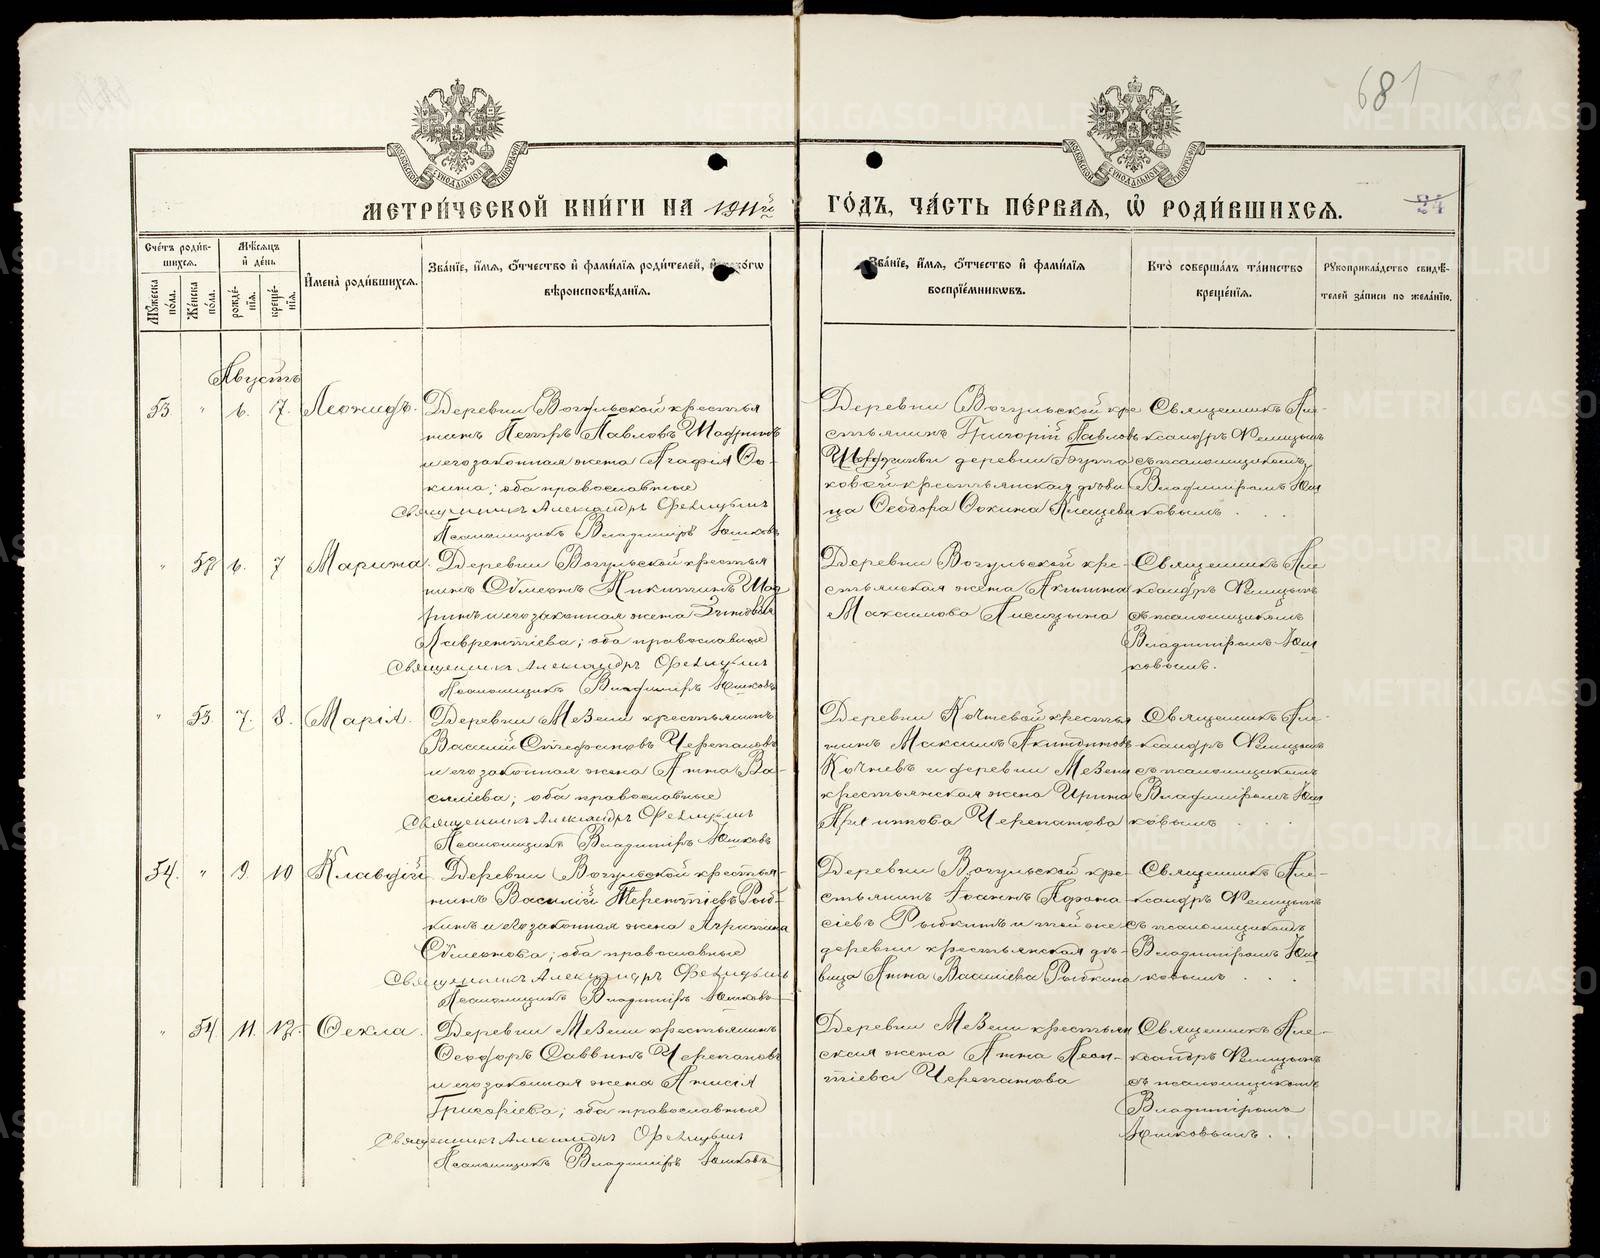 681
МЕТРИ́ЧЕСКОЙ КНИ́ГИ НА 1911й ГО́ДЪ, ЧА́СТЬ ПЕ́РВАЯ, Ѽ РОДИ́ВШИХСЯ.
24
Сче́тъ роди́в-
шихся.
Му́жеска по́ла.
Же́нска по́ла.
Мѣ́сяцъ
и҆ де́нь
рожде́-
нїя.
креще́-
нїя.
И҆мена̀ роди́вшихся.
Зва́нїе, и҆́мя, ѻ҆́тчество и҆ фами́лїя роди́телей, и҆ како́гѡ
вѣроисповѣ́данїя.
Зва́нїе, и҆́мя, ѻ҆́тчество и҆ фами́лїя
воспрїе́мниковъ.
Кто̀ соверша́лъ та́инство
креще́нїя.
Рꙋкоприкла́дство свидѣ́-
телей за́писи по жела́нїю.
Августъ
53. " 6. 7. Леонидъ.
Деревни Вогульской кресть­я
нинъ Петръ Павловъ Шафринъ
и его законная жена Агафія Ѳо-
кина; оба православные
Священникъ Александръ Ѳелицынъ
Псаломщикъ Владиміръ Юшковъ
Деревни Вогульской кре
стьянинъ Григорій Павловъ
Шафринъ и деревни
ковой крестьянская дѣви
ца Ѳеодора Ѳокина Клещева
Священникъ Але-
ксандръ Ѳелицынъ
съ псаломщикомъ
Владиміромъ Юш
ковымъ.
" 52. 6. 7 Марина.
Деревни Вогульской крестья
нинъ Сѵмеонъ Никитинъ Шаф
ринъ и его законная жена Зиновія
Лаврентіева; оба православные
Священникъ Александръ Ѳелицынъ
Псаломщикъ Владиміръ Юшковъ
Деревни Вогульской кре-
стьянская жена Акилина
Максимова Лисицына
Священникъ Але
ксандръ Ѳелицынъ
съ псаломщикомъ
Владиміромъ Юш
ковымъ.
" 53. 7. 8. Марія.
Деревни Мезени крестьянинъ
Василій Стефановъ Черепановъ
и его законная жена Анна Ва-
силіева; оба православные
Священникъ Александръ Ѳелицынъ
Псаломщикъ Владиміръ Юшковъ
Деревни Кочневой крестья
нинъ Максимъ Акиндиновъ
Кочневъ и деревни Мезени
крестьянская жена Ирина
Филиппова Черепанова
Священникъ Але-
ксандръ Ѳелицынъ
съ псаломщикомъ
Владиміромъ Юш
ковымъ
54. " 9. 10 Клавдій
Деревни Вогульской крестья-
нинъ Василій Терентіевъ Рыб-
кинъ и его законная жена Агрипина
Сѵмеонова; оба православные
Священникъ Александръ Ѳелицынъ
Псаломщикъ Владиміръ Юшковъ
Деревни Вогульской кре-
стьянинъ Іоаннъ Аѳана-
сіевъ Рыбкинъ и той же
деревни крестьянская дѣ-
вица Анна Василіева Рыбкина
Священникъ Але-
ксандръ Ѳелицынъ
съ псаломщикомъ
Владиміромъ Юш
ковымъ
" 54 11. 12. Ѳекла.
Деревни Мезени крестьянинъ
Ѳеодоръ Саввинъ Черепановъ
и его законная жена Анисія
Григоріева; оба православные
Священникъ Александръ Ѳелицынъ
Псаломщикъ Владиміръ Юшковъ
Деревни Мезени крестьян
ская жена Анна Леон-
тіева Черепанова
Священникъ Але-
ксандръ Ѳелицынъ
съ псаломщикомъ
Владиміромъ
Юшковымъ.